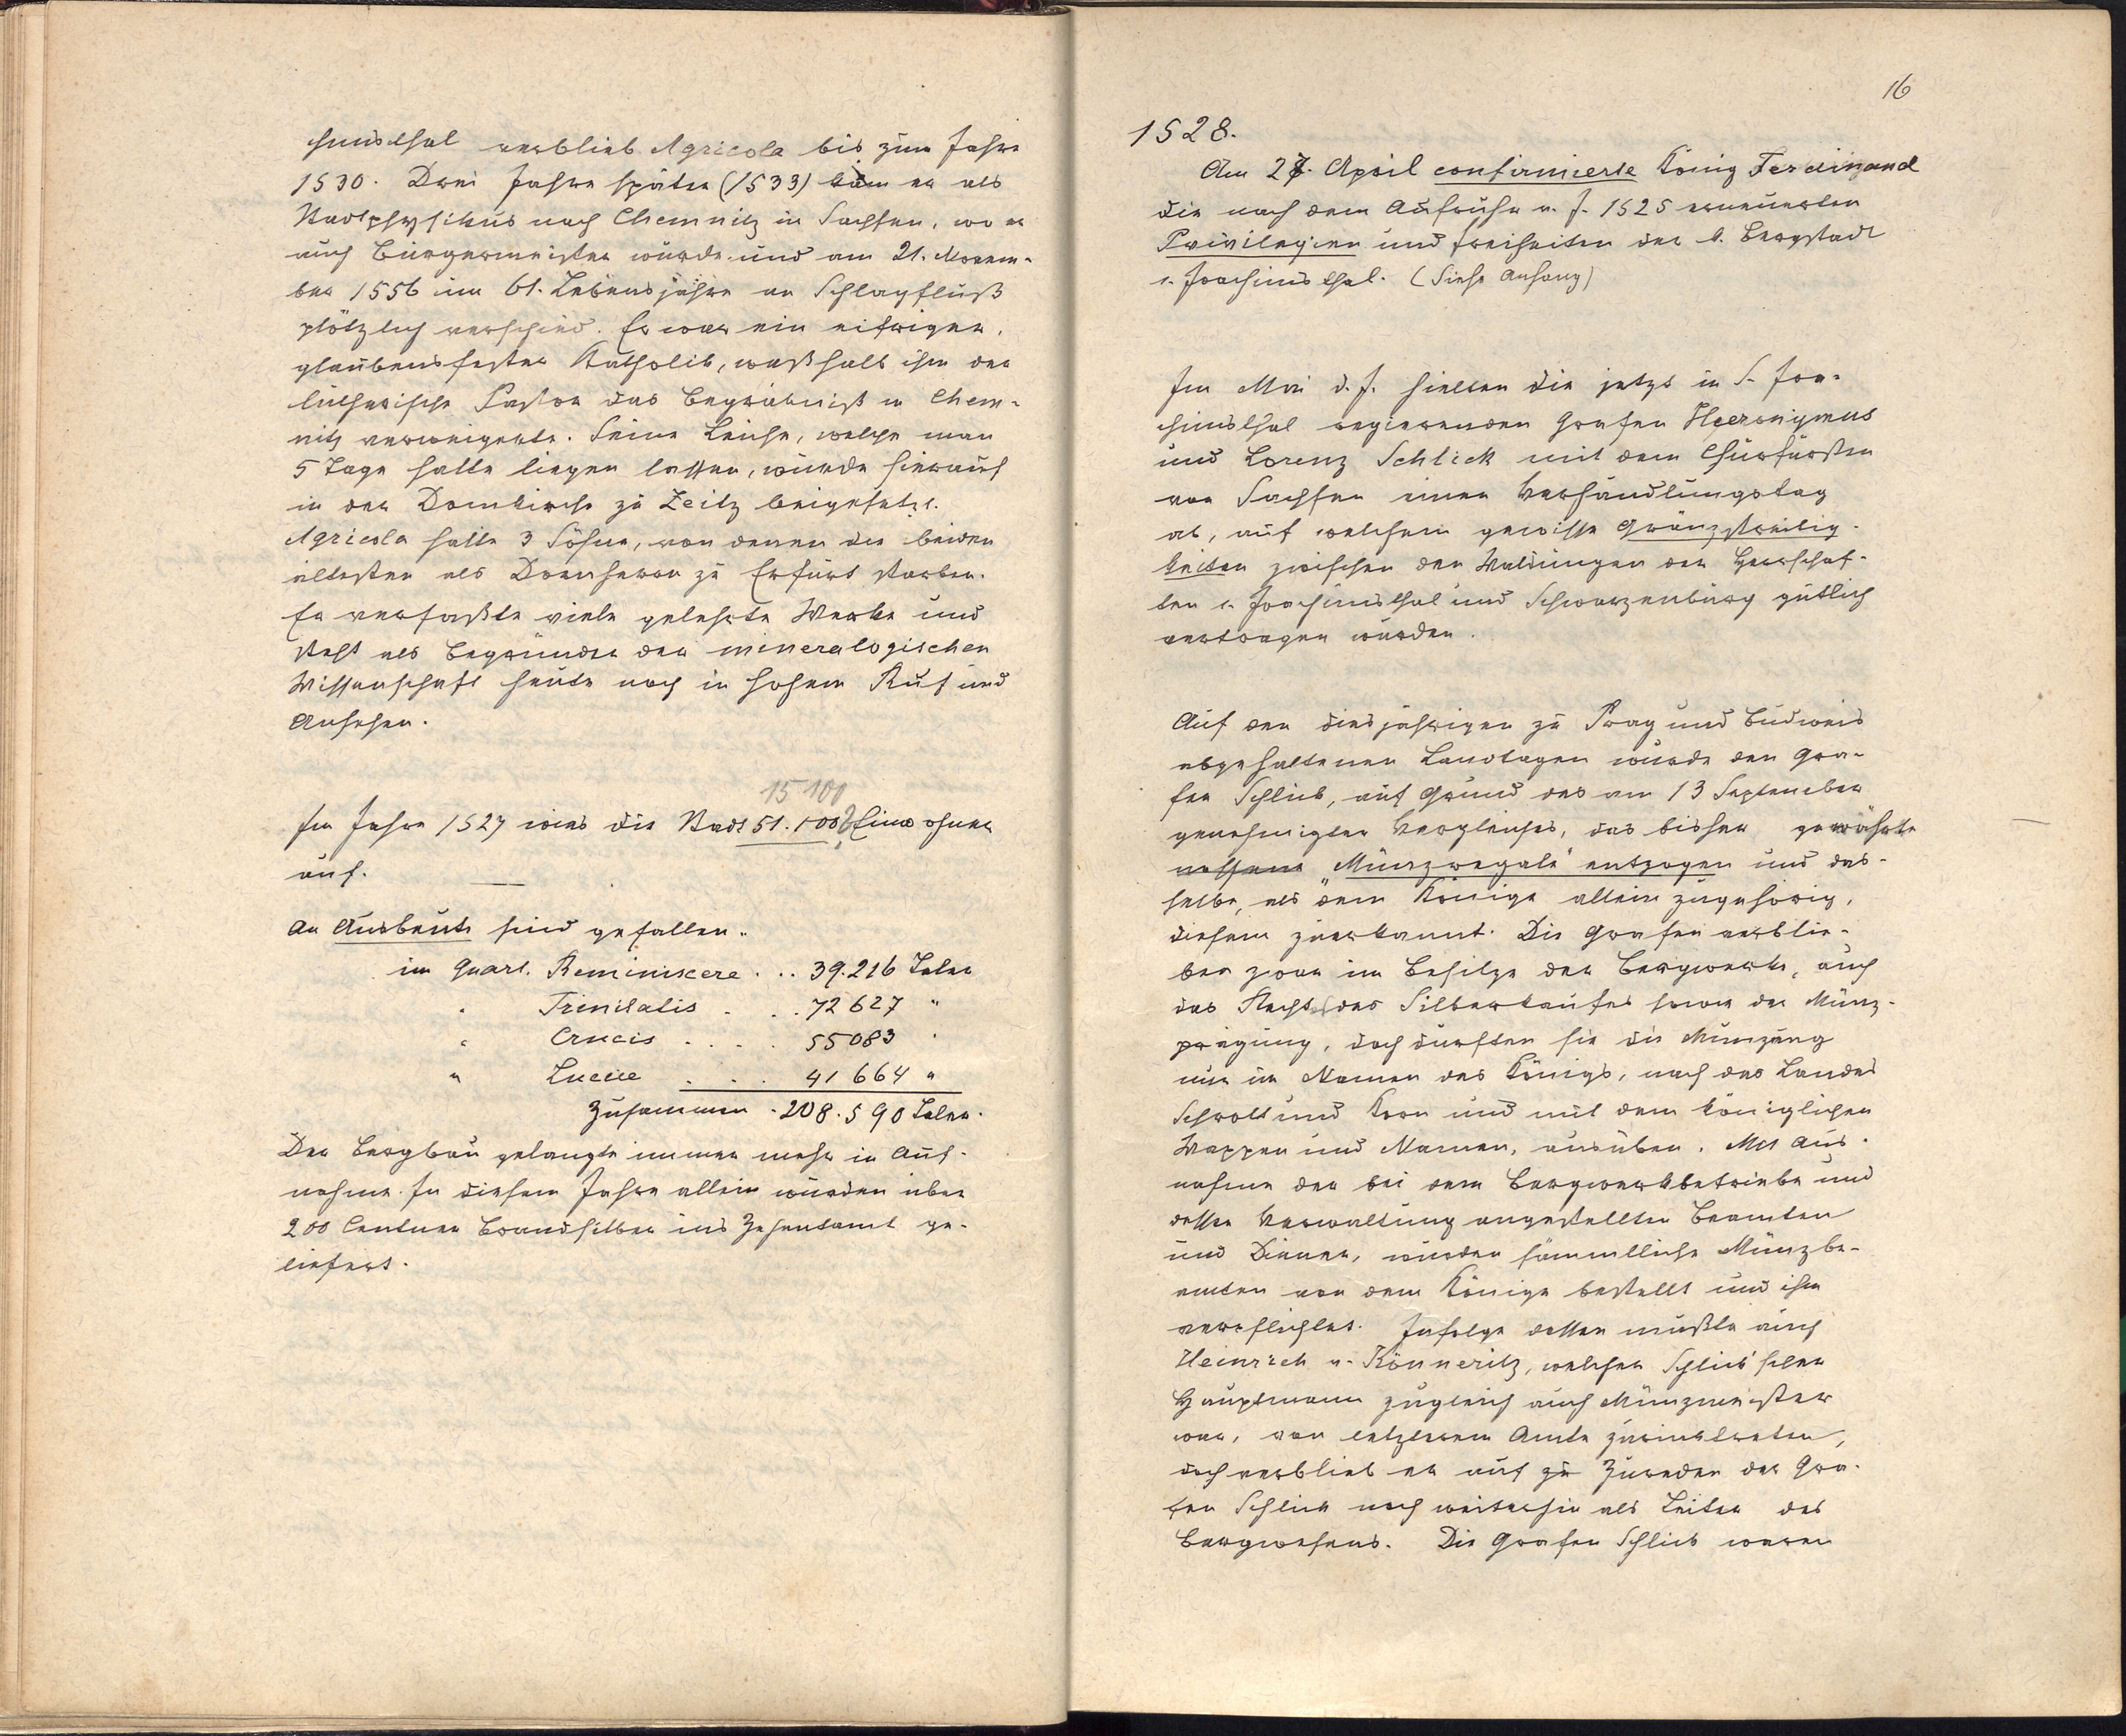 chimsthal verblieb Agricola bis zum Jahre
1530. Drei Jahre später (1533) kam er als
Stadtphysikus nach Chemnitz in Sachsen, wo er
auch Bürgermeister wurde und am 21. Novem-
ber 1556 im 61. Lebensjahre an Schlagfluß
plötzlich verschied. Er war ein eifriger,
glaubensfester Katholik, weßhalb ihm der
lutherische Pastor das Begräbniß in Chem-
nitz verweigerte. Seine Leiche, welche man
5 Tage hatte liegen lassen, wurde hierauf
in der Domkirche zu Zeitz beigesetzt.
Agricola hatte 3 Söhne, von denen die beiden
ältesten als Domherrn zu Erfurt starben.
Er verfaßte viele gelehrte Werke und
steht als Begründer der mineralogischen
Wissenschaft heute noch in hohem Ruf und
Ansehen.
15 100
Im Jahre 1527 wies die Stadt 51.100? Einwohner
auf.
An Ausbeute sind gefallen:
im Quart. Reminiscere . . . 39.216 Taler
" Trinitatis . . . 72 627 "
" Crucis . . . . 55083 "
" Luciæ . . . 41 664 "
Zusammen . 208.590 Taler.
Der Bergbau gelangte immer mehr in Auf-
nahme. In diesem Jahre allein wurden über
200 Centner Brandsilber ins Zehentamt ge-
liefert.
16
1528.
Am 27. April confirmierte König Ferdinand
die nach dem Aufruhr v. J. 1525 erneuerten
Privilegien und Freiheiten der k. Bergstadt
s. Joachimsthal. (Siehe Anhang)
Im Mai d. J. hielten die jetzt in S. Joa-
chimsthal regierenden Grafen Hieronymus
und Lorenz Schlick mit dem Churfürsten
von Sachsen einen Verhandlungstag
ab, auf welchem gewisse Gränzstreitig-
keiten zwischen den Waldungen der Herrschaf-
ten s. Joachimsthal und Schwarzenburg gütlich
vertragen wurden.
Auf den diesjährigen zu Prag und Budweis
abgehaltenen Landtagen wurde den Gra-
fen Schlick, auf Grund des am 13 September
genehmigten Vergleiches, das bisher gewährte
"Münzregale" entzogen und das-
selbe, als dem Könige allein zugehörig,
diesem zuerkannt. Die Grafen verblie-
ben zwar im Besitze der Bergwerke, auch
das Recht des Silberkaufes sowie der Münz-
prägung, doch durften sie die Münzung
nur im Namen des Königs, nach des Landes
Schrott und Korn und mit dem königlichen
Wappen und Namen, ausüben. Mit Aus-
nahme der bei dem Bergwerkbetriebe und
dessen Verwaltung angestellten Beamten
und Diener, wurden sämmtliche Münzbe-
amten von dem Könige bestellt und ihm
verpflichtet. Infolge dessen mußte auch
Heinrich v. Könneritz, welcher Schlick'scher
Hauptmann zugleich auch Münzmeister
war, von letzterem Amte zurücktreten,
doch verblieb er auf zu Zureden der Gra-
fen Schlick noch weiterhin als Leiter des
Bergwesens. Die Grafen Schlick waren